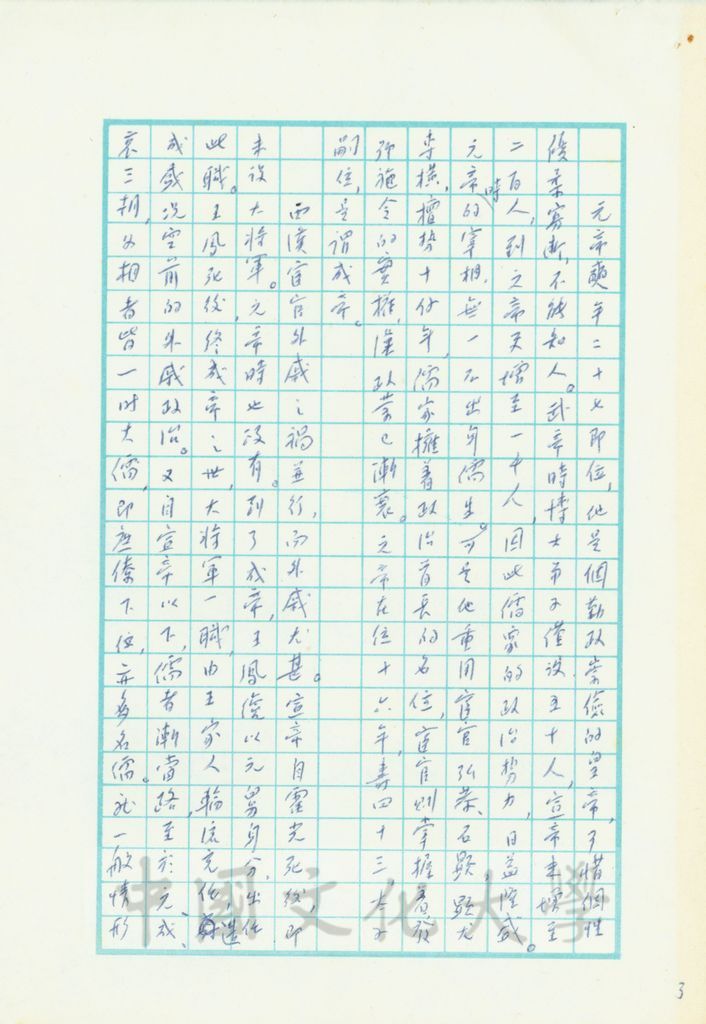 元帝奭年二十七即位，他是個勤政崇儉的皇帝，可惜個性
優柔寡斷，不能知人。武帝時博士弟子僅設五十人，宣帝末增至
二百人，到元帝又增至一千人，因此儒家的政治勢力，日益隆盛。
元帝時的宰相，無一不出身儒生。可是他重用宦官弘恭、石顯，顯尤
專橫，擅勢十餘年，儒家擁着政治首長的名位，宦官則掌握着發
號施令的實權，漢政業已漸衰。元帝在位十六年，壽四十三，太子
嗣位，是謂成帝。
西漢宦官外戚之禍並行，而外戚尤甚。宣帝自霍光死後，即
未設大將軍。元帝時也沒有。到了成帝，王鳳復以元舅身分，出任
此職。王鳳死後，終成帝之世，大將軍一職，由王家人輪流充任，造
成盛況空前的外戚政治。又自宣帝以下，儒者漸當路，至於元、成、
哀三朝，為相者皆一時大儒，即庶僚下位，亦多名儒。就一般情形
3
中國文化大學